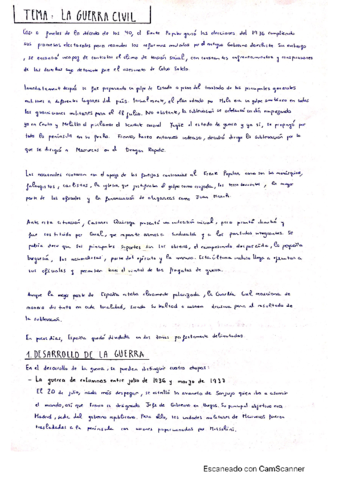 TEMA: LA GUERRA CIVIL
de la década de los 30, el Frente Popular ganó las elecciones del 1936 cumpliendo
sus promesas electorales para reanudar las reformas anuladas por el antiguo Gobierno derechista. Sin embargo,
se mostró incapaz de controlar el clima de tensión social, con constantes enfrentamientos y conspiraciones
de las derechas que detonaron por el asesinato de Calvo Sotelo
Inmediatamente después se fue preparando un golpe de Estado a pesar del traslado de los principales generales
militares a diferentes lugares del país. Inicialmente, el plan ideado por Mola era un golpe simultáneo en todas
las guarniciones militares para el 18 julio. No obstante, la sublevación se adelantó un día empezando
ya en Ceuta y Melilla al proclamar el levantamiento. Yagüe el estado de guerra y ya sí, se propagó por
toda la península en su fecha. Franco, hasta entonces indeciso, decidió dirigir la sublevación por lo
que se dirigió a Marruecos en el Dragon Rapide.
Los sublevados contaron con el apoyo de los partidos contrarios al Frente Popular como son los monárquicos,
falangistas, carlistas, la iglesia que justificaba el golpe como cruzada, los terratenientes, la mayor
parte de los oficiales y la financiación de oligarcas como Juan March.
Ante esta situación, Casares Quiroga presentó su dimisión inicial, pero pronto dimitió y
fue sustituido por Giral, que repartió armas a sindicatos y a los partidos integrantes. Se
podría decir que sus principales soportes son los obreros, el campesinado desposeído, la pequeña
burguesía, los asalariados, parte del ejército y la marina. Esta última incluso llegó a ejecutar a
sus oficiales y permitió tener el control de las fragatas de guerra.
Aunque la mayor parte de España estaba claramente polarizada, la Guardia Civil mantiene un
en cada localidad, siendo la lealtad o no un decisiva para el resultado de
la sublevación.
En pocos días, España quedó dividida en dos zonas perfectamente delimitadas
1. DESARROLLO DE LA GUERRA
En el desarrollo de la guerra, se pueden distinguir cuatro etapas:
- La guerra de columnas entre julio de 1936 y marzo de 1937
El 20 de julio, nada más despegar, se estrelló la avioneta de Sanjurjo quien iba a asumir
el mando, así que Franco es designado Jefe de Gobierno en Burgos. Su principal objetivo era
Madrid, sede del gobierno republicano. Para ello, las unidades militares de Marruecos fueron
trasladadas a la península con aviones proporcionados por Mussolini,
Escaneado con CamScanner